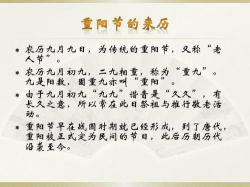 重阳节的来历
农历九月九日，为传统的重阳节，又称“老
人节”。
农历九月初九，二九相重，称为“重九”。
九是阳数，固重九亦叫“重阳”。
由于九月初九“九九”谐音是“久久”，有
长久之意，所以常在此日祭祖与推行敬老活
动。
重阳节早在战国时期就已经形成，到了唐代，
重阳被正式定为民间的节日，此后历朝历代
沿袭至今。